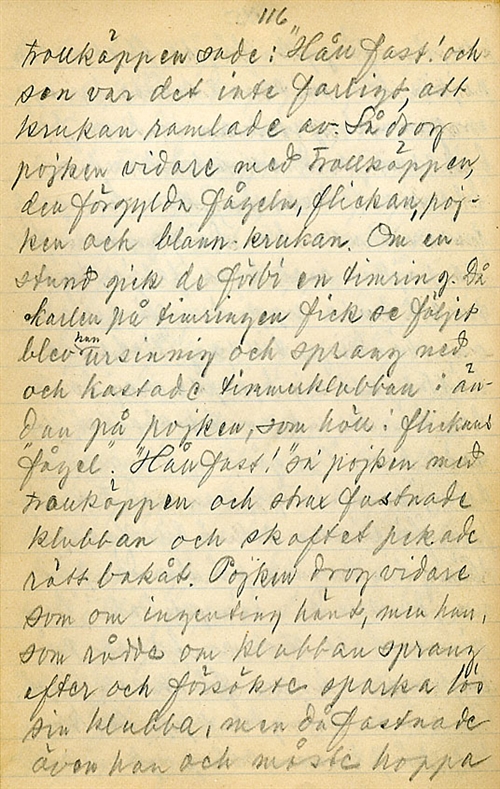 116
Trollkäppen sade: "Håll fast! och
sen var det inte farligt, att
krukan ramlade av. Så drog
pojken vidare med Trollkäppen,
den förgylda fågeln, flickan, poj-
ken och blann-krukan. Om en
stund gick de förbi en timring. Då
karlen på timringen fick se följet
blev han ursinnig och sprang ned
och kastade timmerklubban i än-
dan på pojken, som höll i flickans
"fågel". "Håll fast!" sa' pojken med
Trollkäppen och strax fastnade
klubban och skaftet pekade
rätt bakåt. Pojken drog vidare
som om ingenting hänt, men han,
som rådde om klubban sprang
efter och försökte sparka lös
sin klubba, men då fastnade
även han och måste hoppa